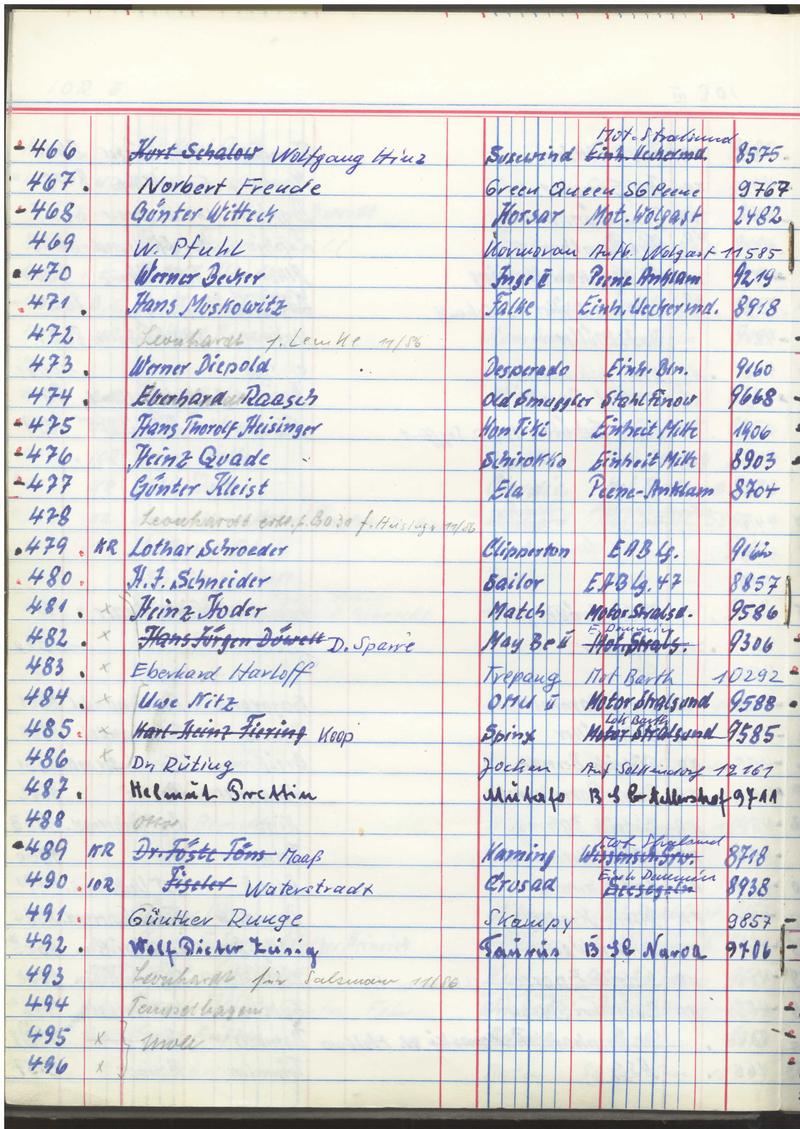 Mot. Stralsund
466 Kurt Schalow Wolfgang Hinz Susewind Einh. Ueckermd. 8575
467. Norbert Freude Green Queen SG Peene 9767
468 Günter Witteck Korsar Mot. Wolgast 2482
469 W. Pfuhl Kormoran Aufb. Wolgast 11585
470 Werner Becker Inge II Peene Anklam 9219
471. Hans Moskowitz Falke Einh. Ueckermd. 8918
472 Leonhardt 1. Lemke 11/86
473. Werner Diepold Desperado Einh. Bln. 9160
474. Eberhard Raasch Old Smuggler Stahl Finow 9668
475 Hans Thorolf Heisinger Kon Tiki Einheit Mitte 1906
476 Heinz Quade Schirokko Einheit Mitte 8903
477 Günter Kleist Ela Peene-Anklam 8704
478 Leonhardt f. Heisinger 11/86
479. KR Lothar Schroeder Clipperton EAB Lg.
480. H.J. Schneider Bailor EAB Lg. 47 8857
481. x Heinz Koder Match Motor Stralsd. 9586
E. Demmin
482. x Hans Jürgen Döwelt D. Sparre May Be II Mot. Strals. 9306
483. x Eberhard Harloff Trepang Mot Barth 10292
484. x Uwe Nitz OHU II Motor Stralsund 9588
Lok Barth
485. x Karl-Heinz Fiering Koop Spinx Motor Stralsund 9585
486 x Dr. Rüting Jochen 12161
487. Helmut Prettin BSG 9711
488 Otto
Mot. Stralsund
489 KR Maaß Kaming 8718
Einh Demmin
490. 10R Fischer Waterstradt Crusad 8938
491. Günther Runge Skampy 9857
492. Wolf Dieter Zeisig Taurus BSG Narva 9706
493 Leonhardt für Salzmann 11/86
494 Tempelhagen
495 x
496 x